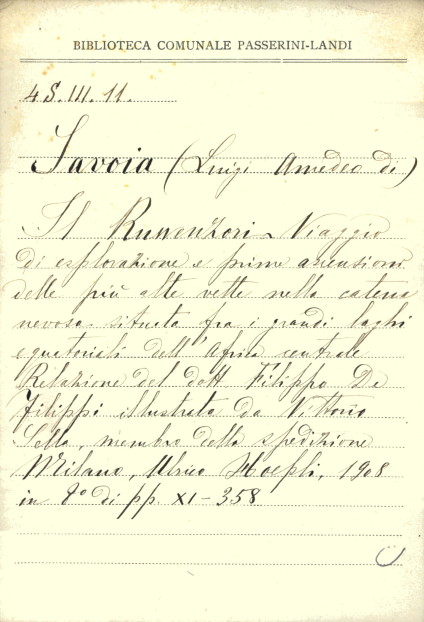 BIBLIOTECA COMUNALE PASSERINI-LANDI
4S.III.11.
Savoia (Luigi Amedeo di)
Il Ruwenzori - Viaggio
di esplorazione e prime ascensioni
delle più alte vette nella catena
nevosa situata fra i grandi laghi
equatoriali dell'Africa centrale
Relazione del dott Filippo De
Filippi illustrata da Vittorio
Sella, membro della spedizione
Milano, Ulrico Hoepli, 1908
in 8° di pp. XI-358